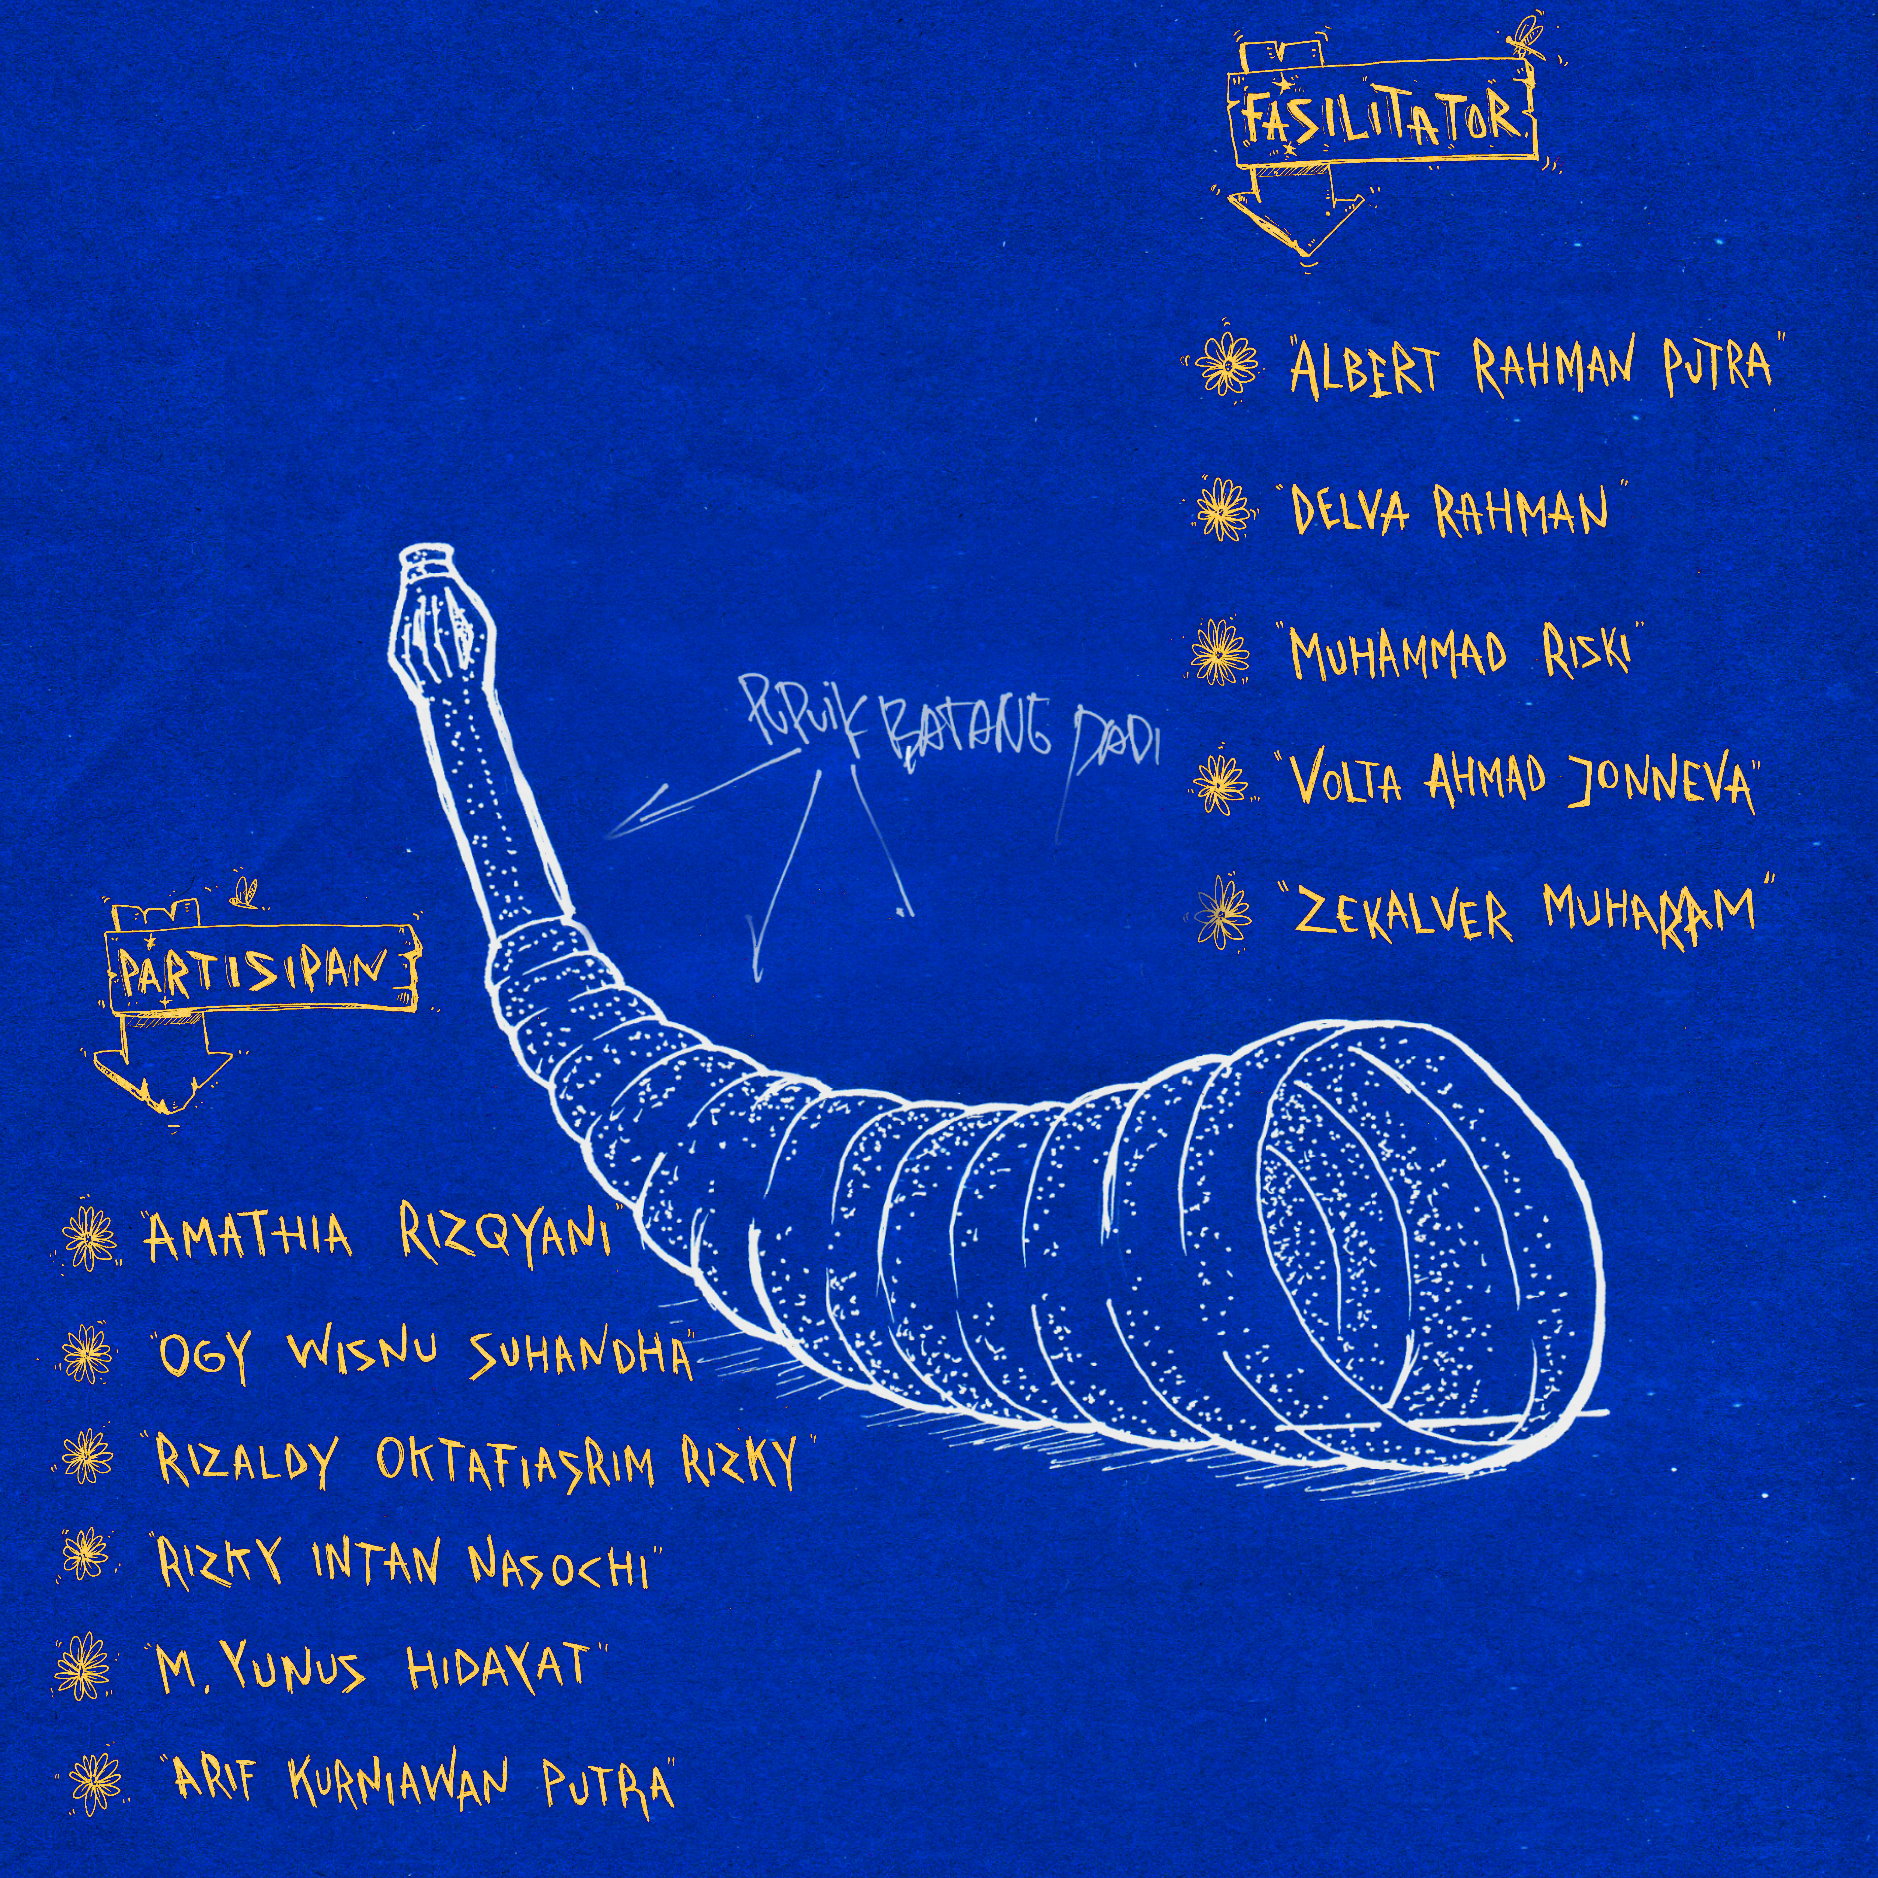 FASILITATOR
"ALBERT RAHMAN PUTRA"
"DELVA RAHMAN"
"MUHAMMAD RISKI"
"VOLTA AHMAD JONNEVA"
"ZEKALVER MUHARAM"
PUPUIK BATANG PADI
PARTISIPAN
"AMATHIA RIZQYANI"
"OGY WISNU SUHANDHA"
"RIZALDY OKTAFIASRIM RIZKY"
"RIZKY INTAN NASOCHI"
"M. YUNUS HIDAYAT"
"ARIF KURNIAWAN PUTRA"